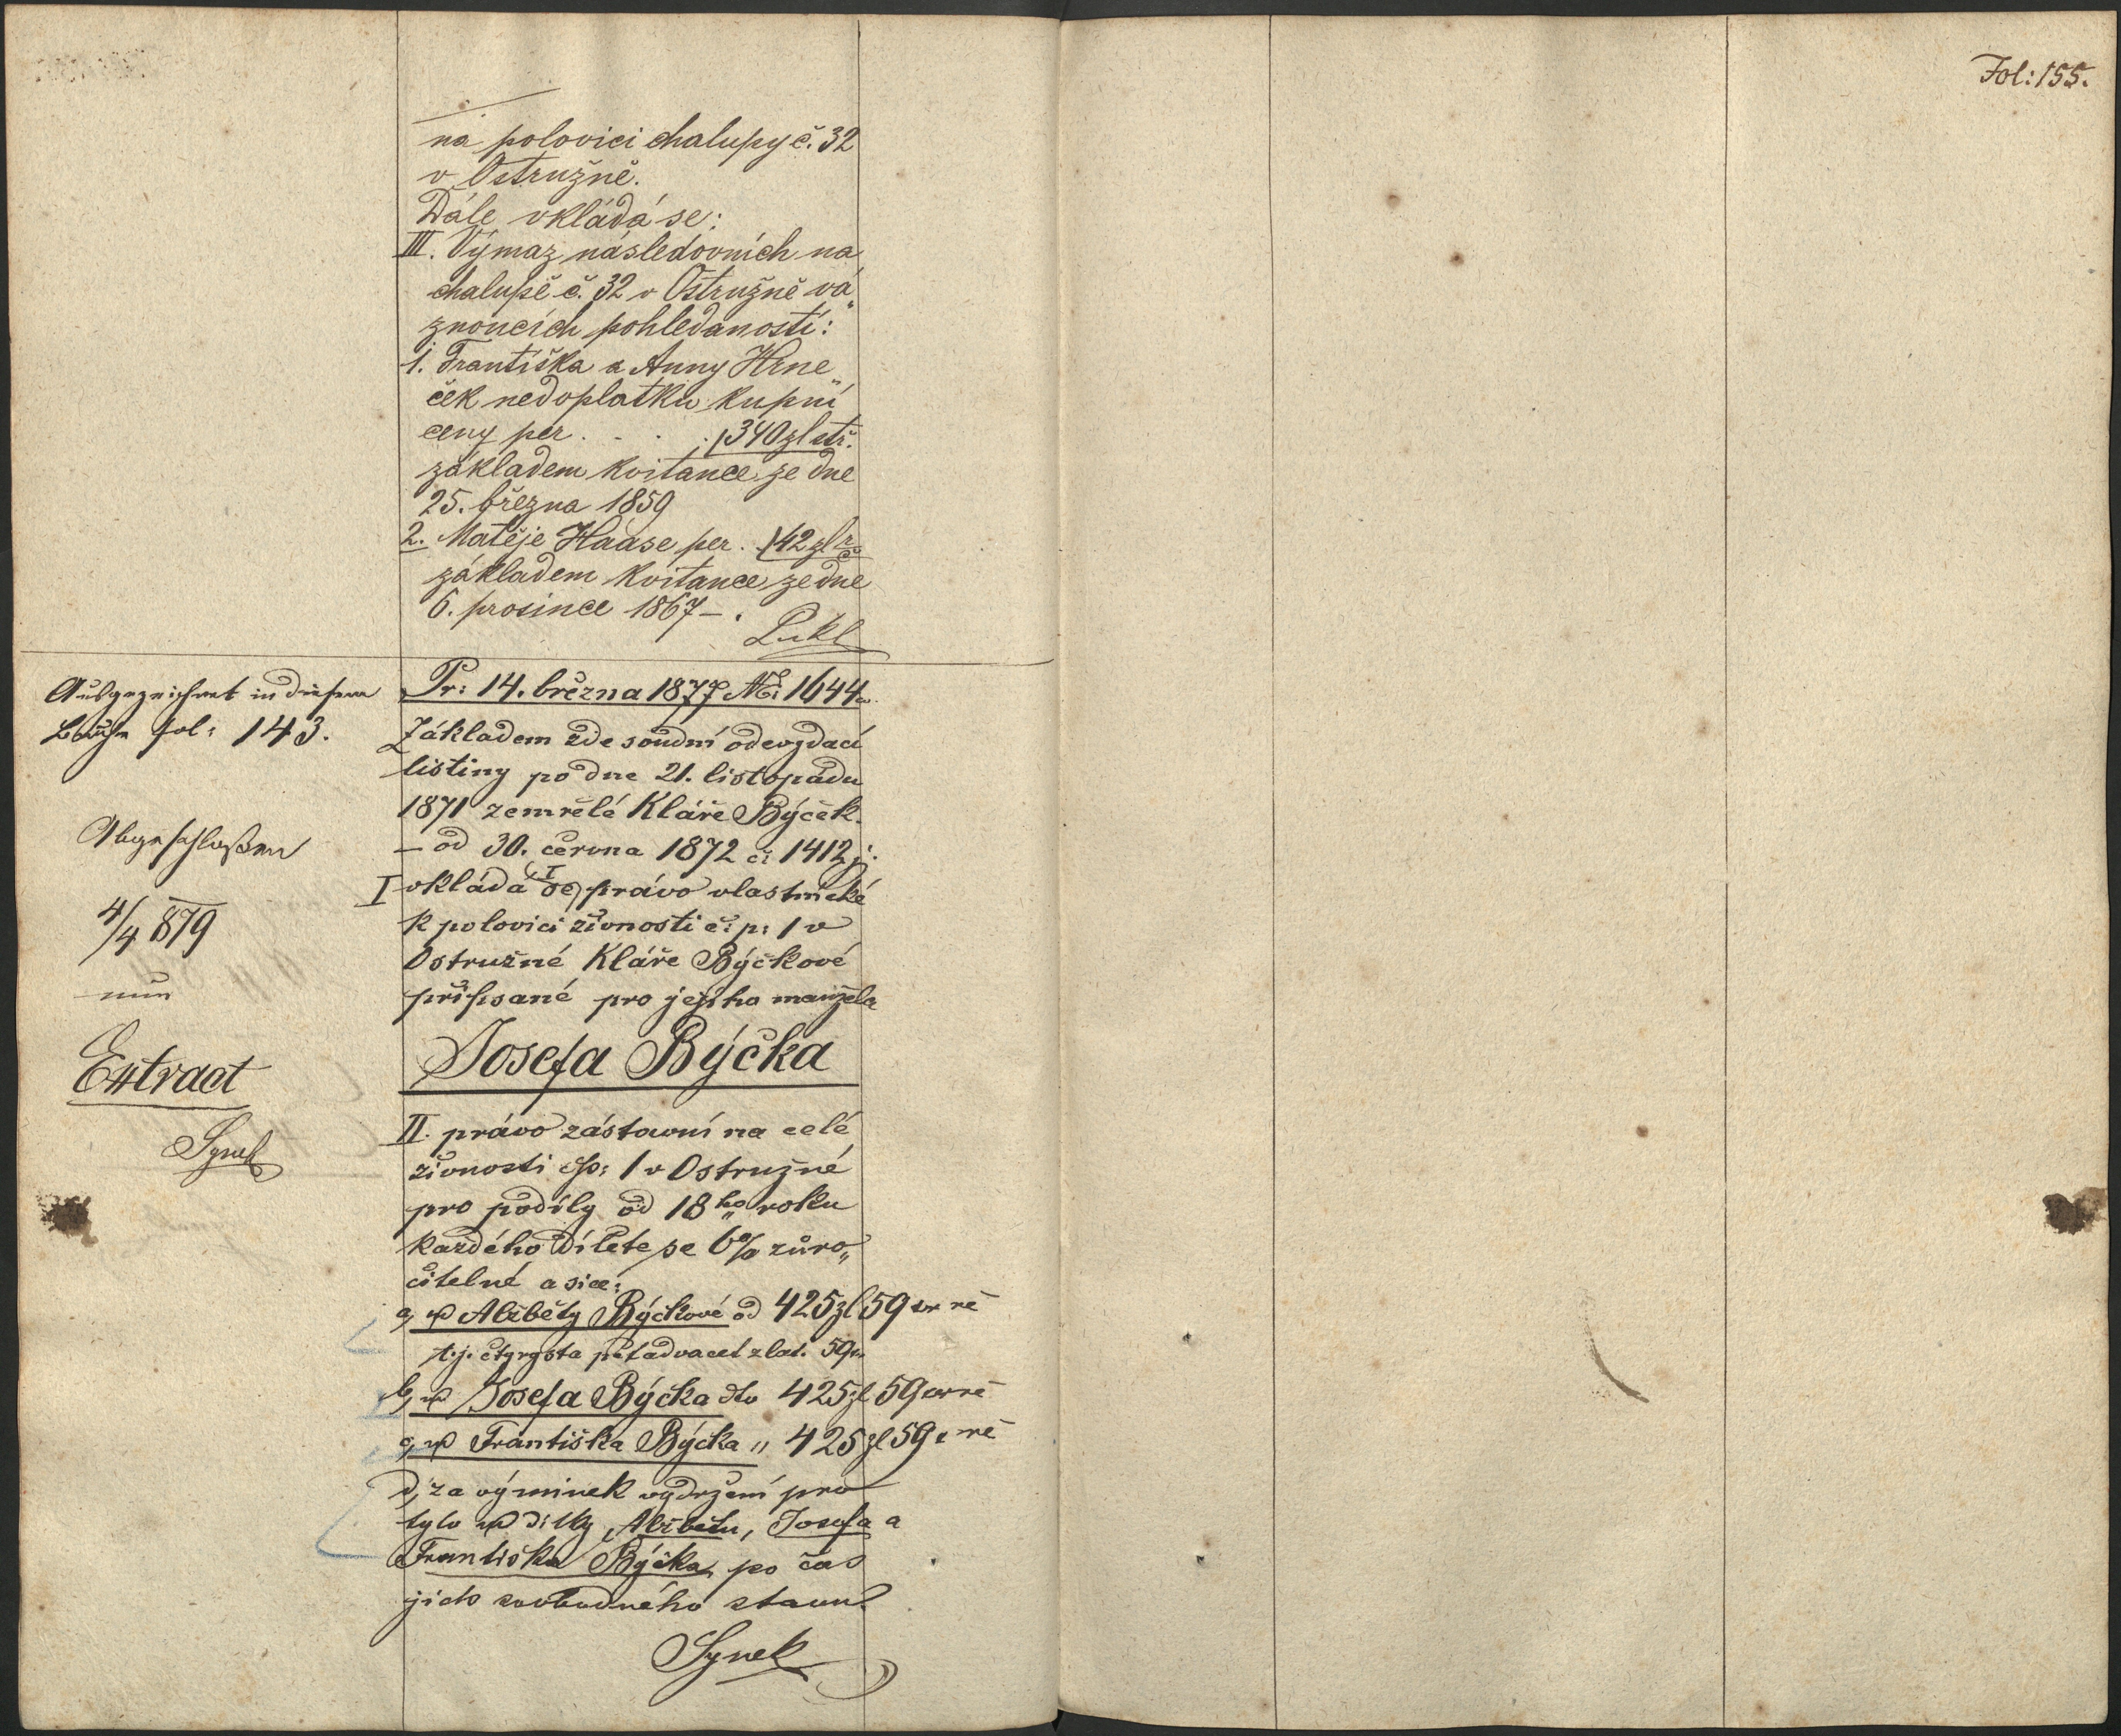 Fol: 155.
na polovici chalupy č. 32
v Ostružně.
Dále vkládá se:
III. Výmaz následovních na
chalupě č. 32 v Ostružně vá„
znoucích pohledaností:
1. Františka a Anny Hrne„
ček nedoplatku kupní
ceny per . . . . 340 zl stř.
základem kvitance ze dne
25. března 1859
2. Matěje Haase per . 42 zl
základem kvitance ze dne
6. prosince 1867 – .
Lukl
Ausgezeichnet in diesem
Buche fol: 143.
Abgeschloßen
4/4 879
nun
Extract
Synek
Pr: 14. března 1877 No: 1644
Základem zde soudní odevzdací
listiny po dne 21. listopadu
1871 zemřelé Kláře Býček.
– od 30. června 1872 č: 1412 j.
I vkládá se, právo vlastnické
k polovici živnosti č: p: 1 v
Ostružné Kláře Býčkové
připsané pro jejího manžela
Josefa Býčka
II. právo zástavní na celé
živnosti čp: 1 v Ostružné
pro podíly od 18ho roku
každého dítete se 6% zůro„
čitelné a sice:
a, Alžběty Býčkové od 425 zl 59
t.j. čtyrysta pětadvacet zlat. 59
b, Josefa Býčka dto 425 zl 59
c, Františka Býčka „ 425 zl 59
d, za výminek vydržení pro
tyto dítky, Alžbětu, Josefa a
Františka Býčka, po čas
jich svobodného stavu.
Synek